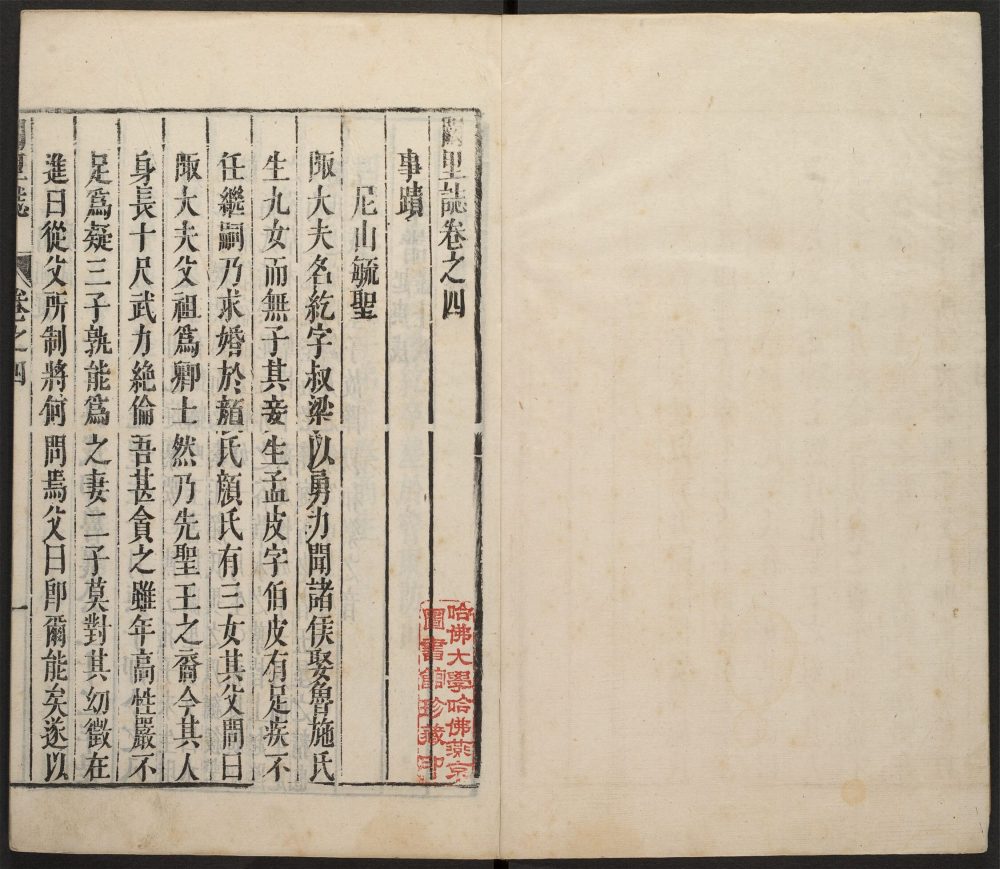 闕里誌卷之四
事蹟
尼山毓聖
陬大夫名紇字叔梁以勇力聞諸侯娶魯施氏
生九女而無子其妾生孟皮字伯皮有足疾不
任繼嗣乃求婚於顏氏顏氏有三女其父問曰
陬大夫父祖爲卿士然乃先聖王之裔今其人
身長十尺武力絶倫吾甚貪之雖年高性嚴不
足爲疑三子孰能爲之妻二子莫對其幼徵在
進曰從父所制將何問焉父曰卽爾能矣遂以
闕里誌 卷之四 一
哈佛大學哈佛燕京
圖書館珍藏印